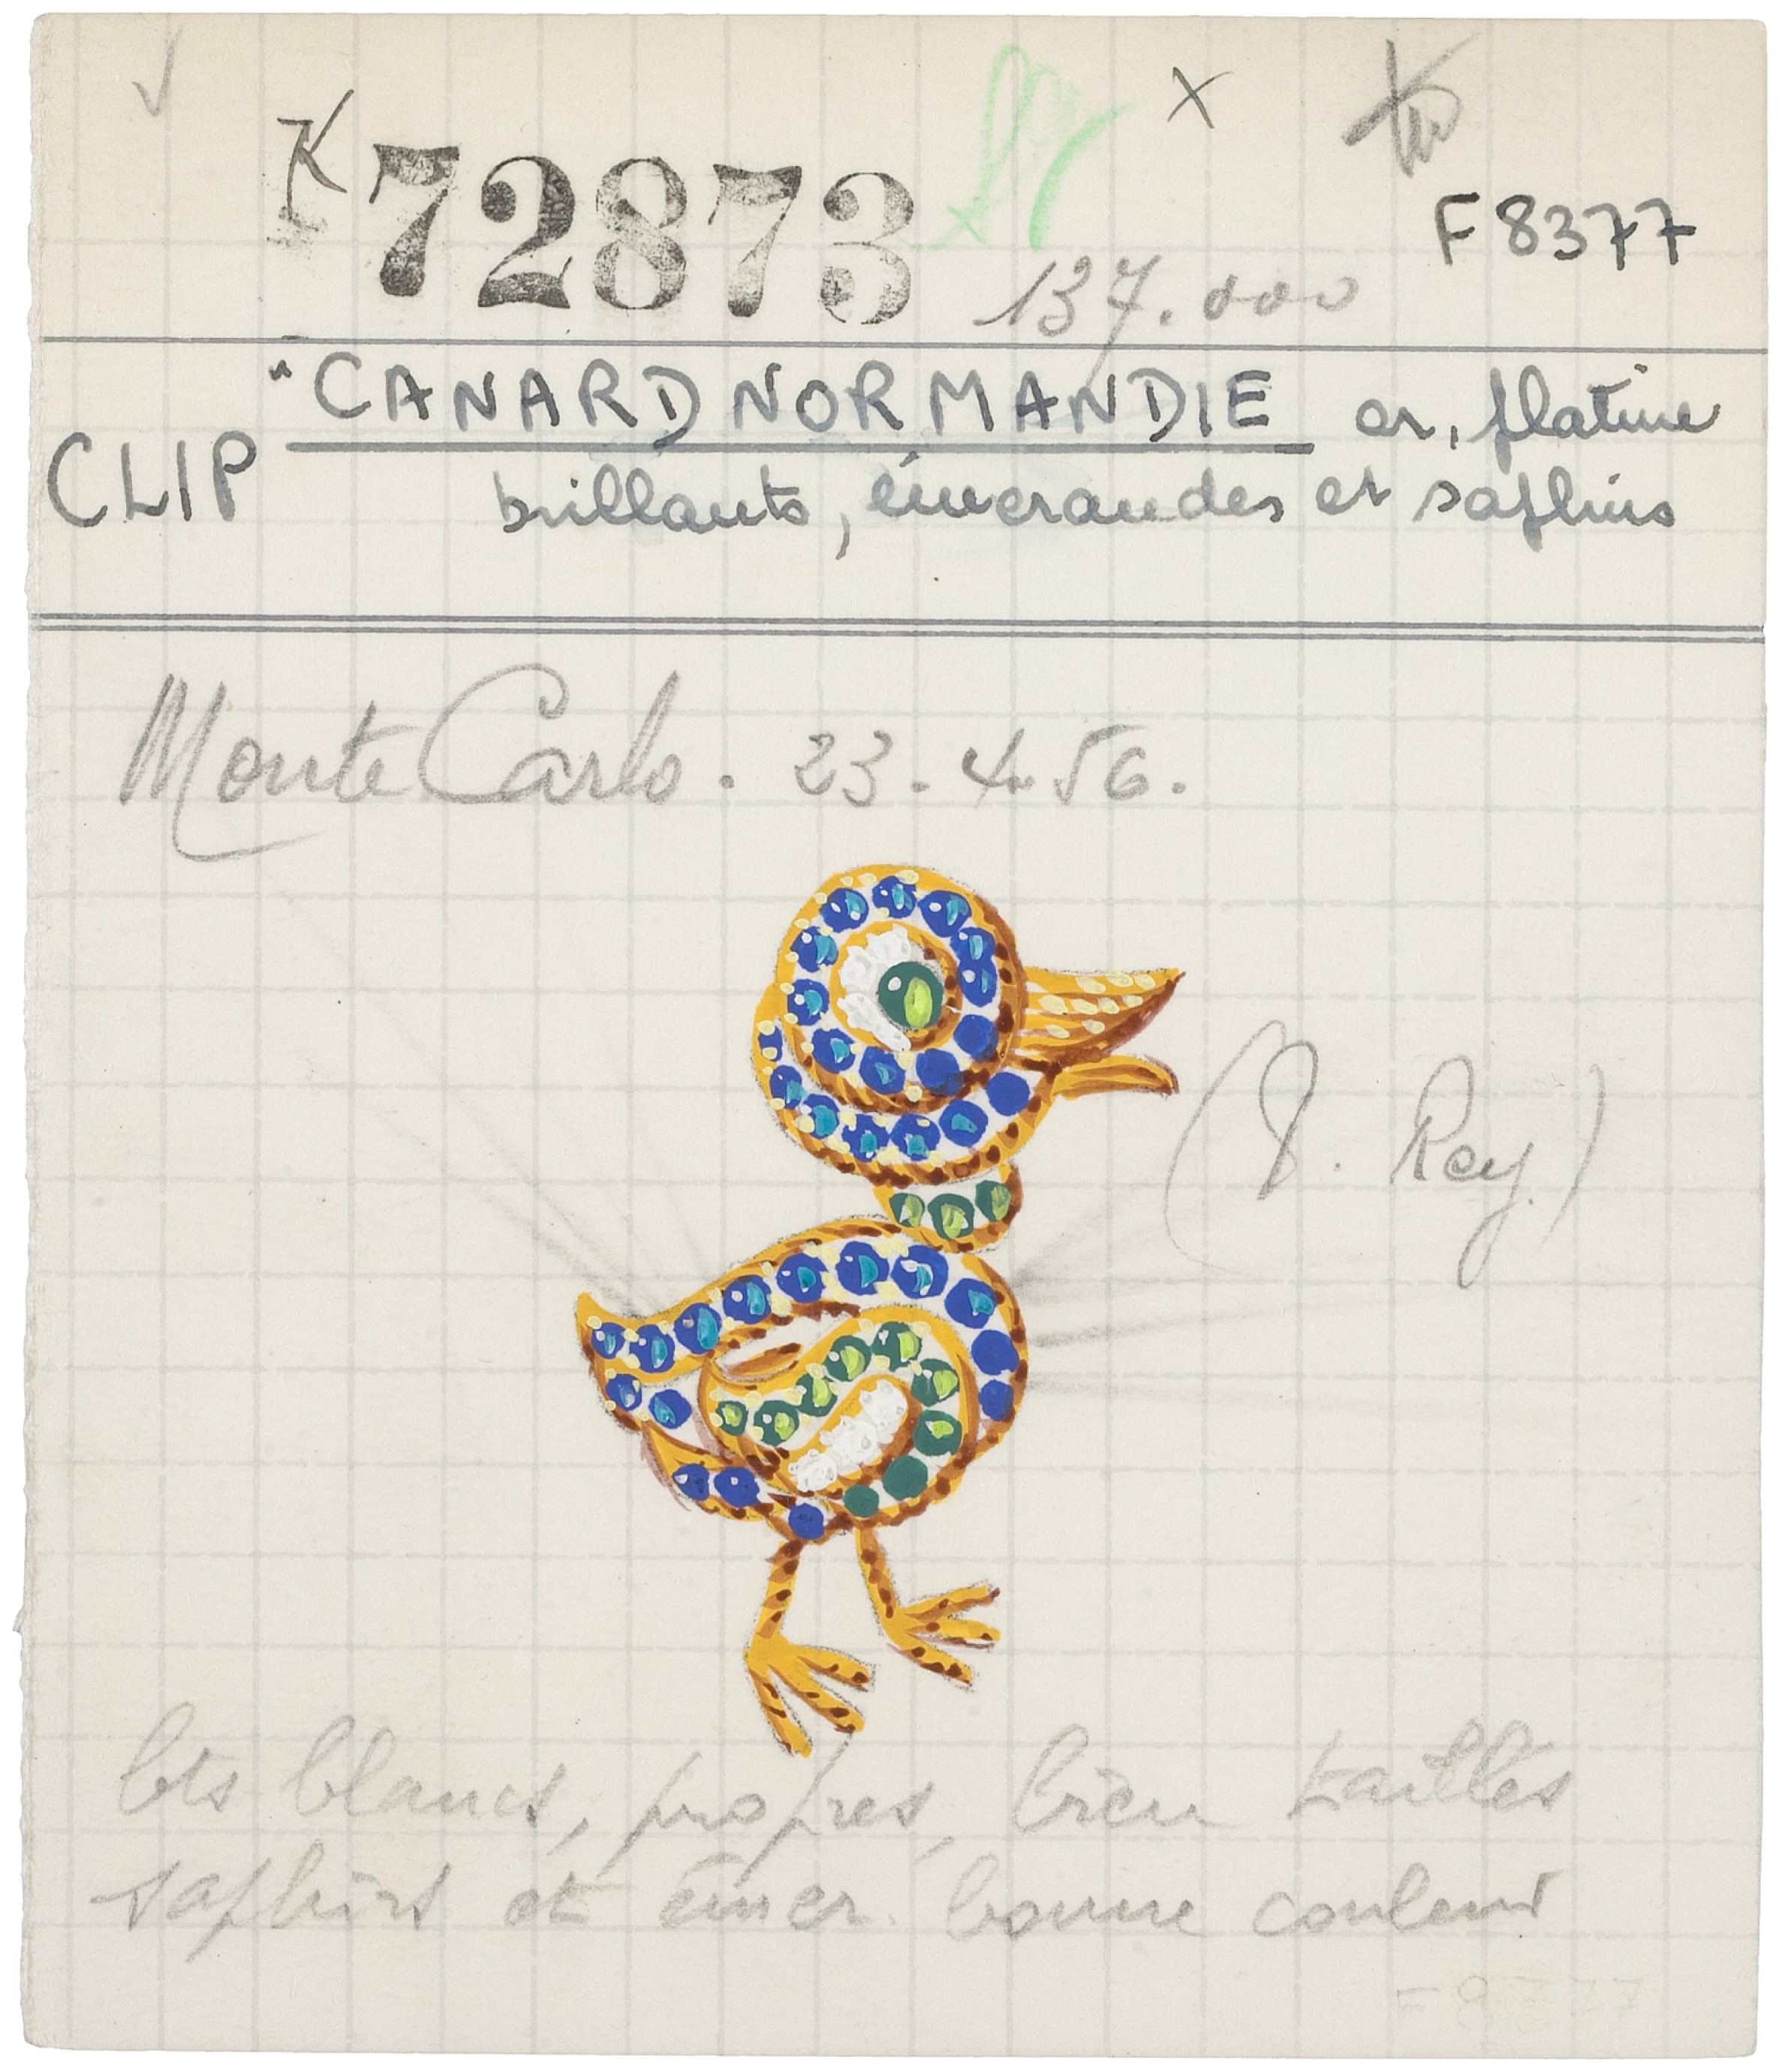 K 72873
F 8377
137.000
"CANARD NORMANDIE or, platine
CLIP
brillants, émeraudes et saphirs
Monte Carlo. 23.4.56.
Rey.)
bts blancs, propres, bien taillés
saphirs et émer. bonne couleur